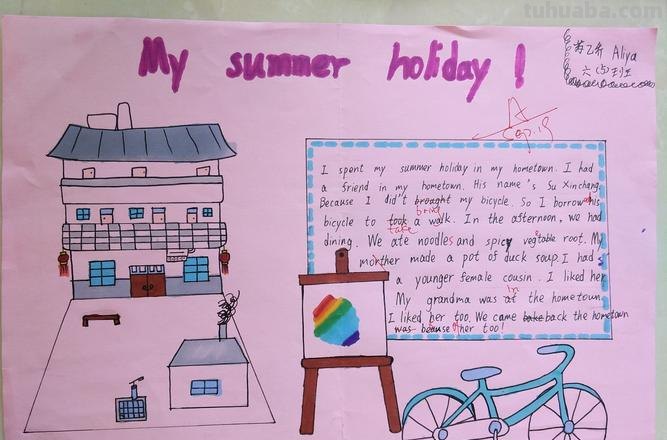 tuhuaba.com
My summer holiday !
黄乙乔 Aliya
六(5)班
A
Sep.19
I spent my summer holiday in my hometown. I had
a friend in my hometown. His name's Su Xincheng.
Because I did't brought my bicycle. So I borrow his
bring
bicycle to took a walk. In the afternoon, we had
take
dining. We ate noodles and spicy vegetable root. My
mother made a pot of duck soup. I had
a younger female cousin. I liked her
My grandma was in the hometown.
I liked her too. We came take back the hometown
was because of her too!